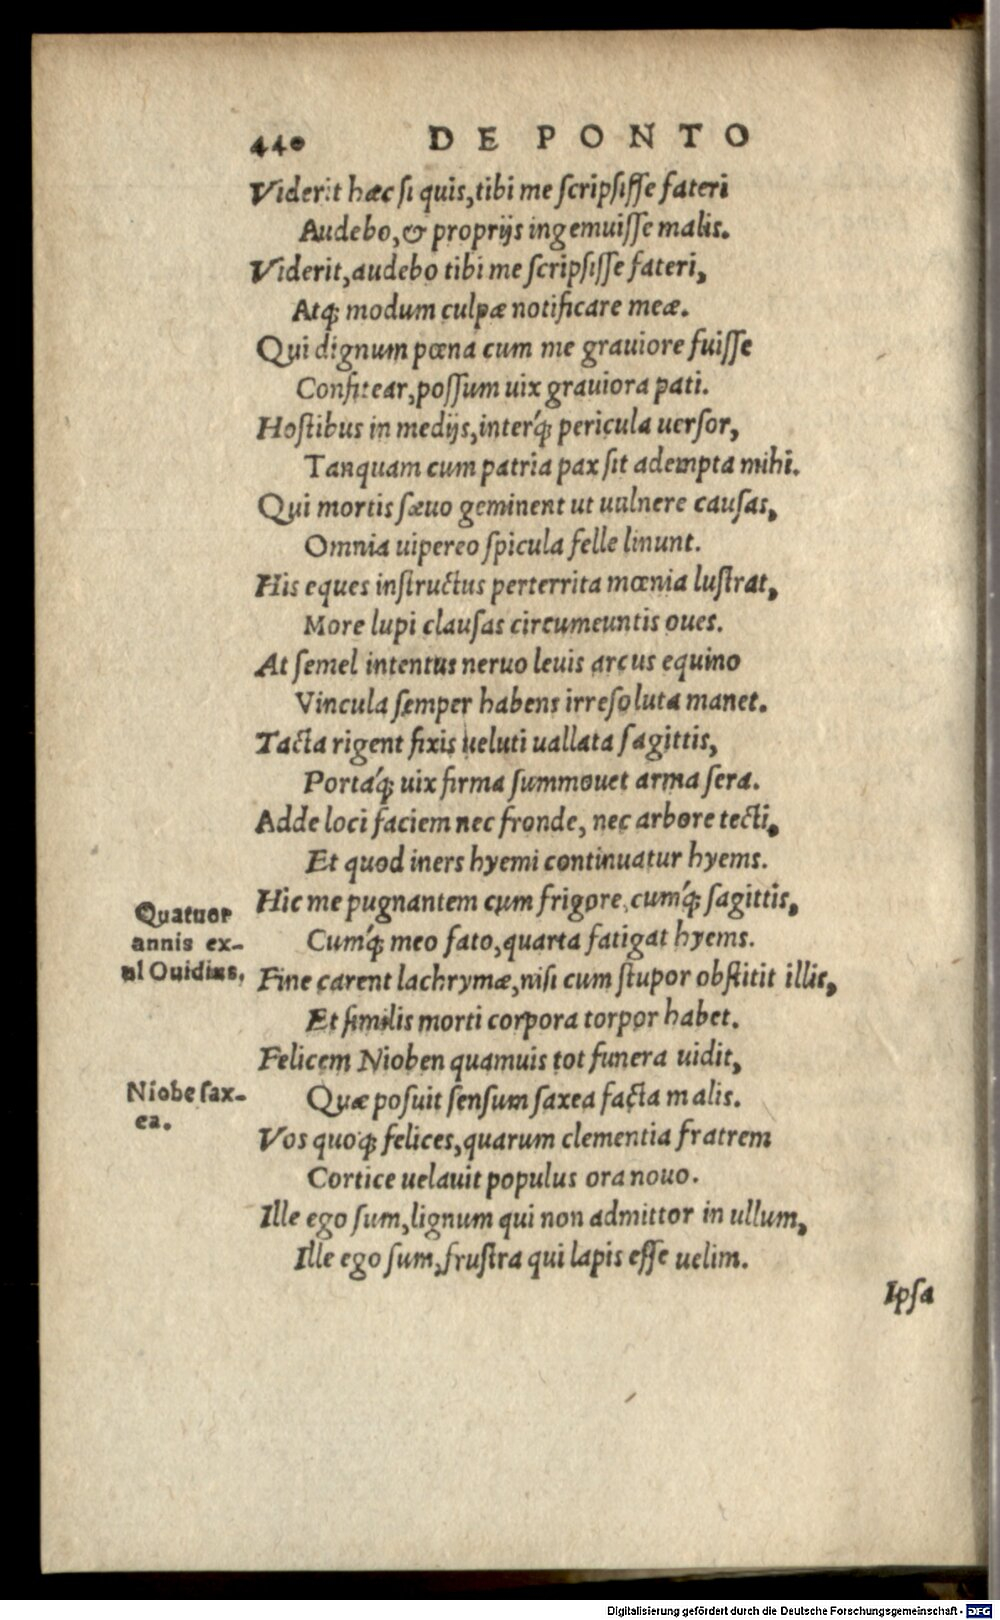 440 DE PONTO
Viderit hæc si quis, tibi me scripsisse fateri
Audebo, & proprijs ingemuisse malis.
Viderit, audebo tibi me scripsisse fateri,
Atq; modum culpæ notificare meæ.
Qui dignum pœna cum me grauiore fuisse
Confitear, possum uix grauiora pati.
Hostibus in medijs, inter'q; pericula uersor,
Tanquam cum patria pax sit adempta mihi.
Qui mortis sæuo geminent ut uulnere causas,
Omnia uipereo spicula felle linunt.
His eques instructus perterrita mœnia lustrat,
More lupi clausas circumeuntis oues.
At semel intentus neruo leuis arcus equino
Vincula semper habens irresoluta manet.
Tacta rigent fixis ueluti uallata sagittis,
Portá'q; uix firma summouet arma sera.
Adde loci faciem nec fronde, nec arbore tecti,
Et quod iners hyemi continuatur hyems.
Hic me pugnantem cum frigore, cum'q; sagittis,
Cum'q; meo fato, quarta fatigat hyems.
Quatuor
annis ex-
ul Ouidius,
Fine carent lachrymæ, nisi cum stupor obstitit illis,
Et similis morti corpora torpor habet.
Felicem Nioben quamuis tot funera uidit,
Quæ posuit sensum saxea facta malis.
Niobe sax-
ea.
Vos quoq; felices, quarum clementia fratrem
Cortice uelauit populus ora nouo.
Ille ego sum, lignum qui non admittor in ullum,
Ille ego sum, frustra qui lapis esse uelim.
Ipsa
Digitalisierung gefördert durch die Deutsche Forschungsgemeinschaft - DFG